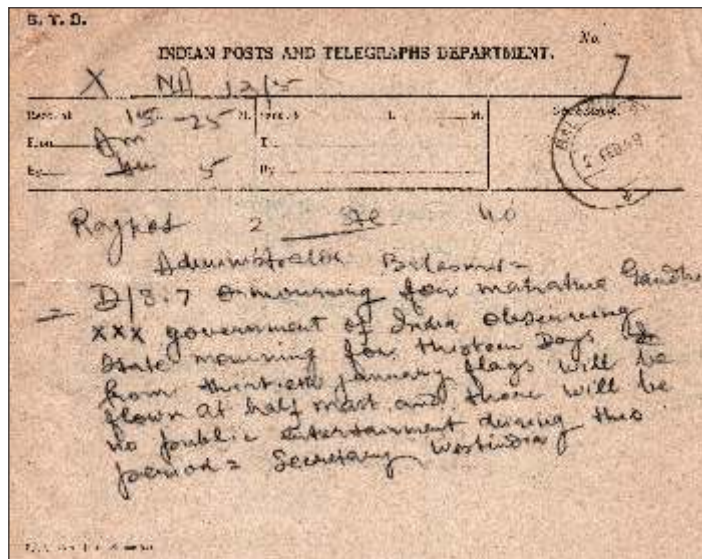 S. Y. D.
No. 7
INDIAN POSTS AND TELEGRAPHS DEPARTMENT.
X NA 12/5
Recd. at 15-25 H. M.
From Am T
By 5 By
2 FEB 48
Rajkot 2 Ste 40
Administrator Bilaspur =
= D/8.7 mourning for mahatma Gandhi
XXX government of India observing
State mourning for thirteen Days
from thirtieth january flags will be
flown at half mast and there will be
no public entertainment during this
period = Secretary Westindia